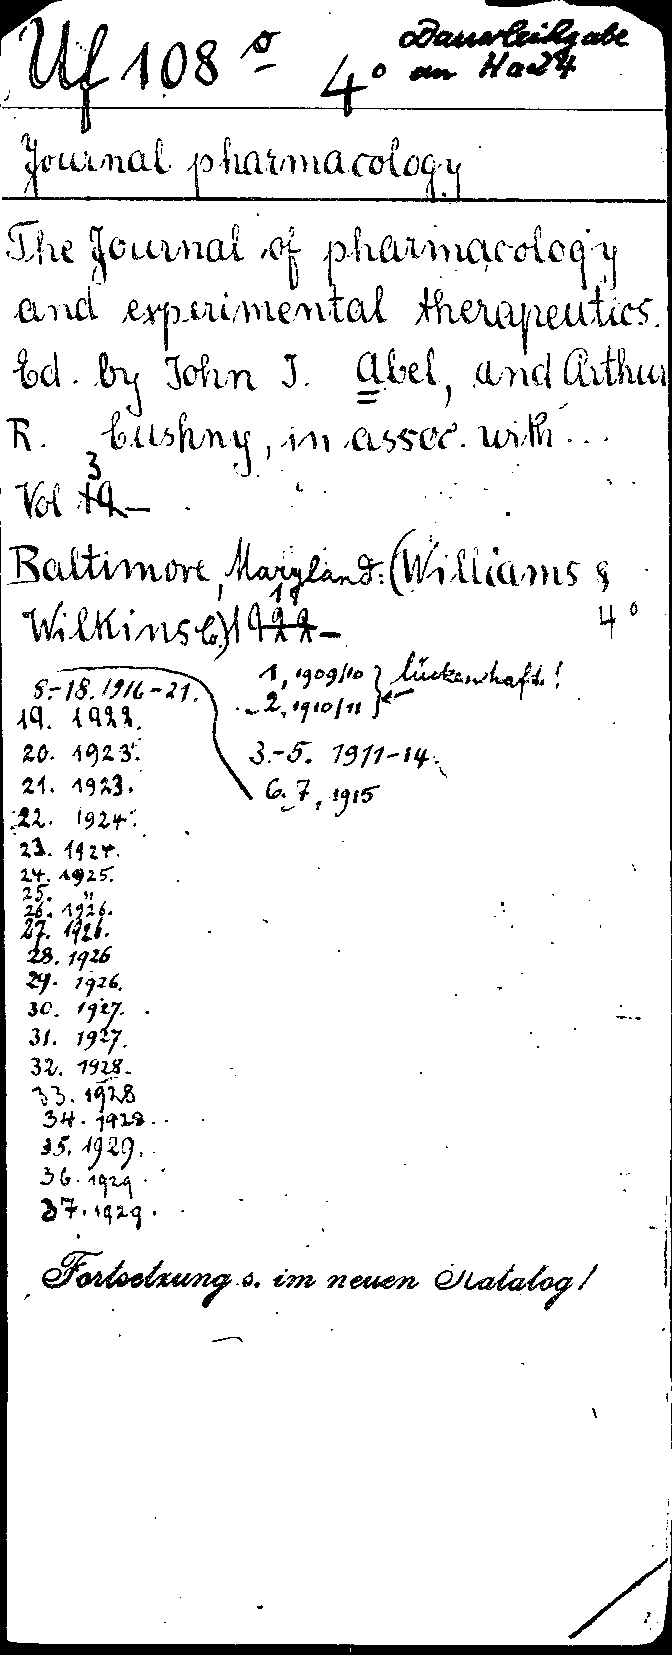 Uf 108 º 4º
Dauerleihgabe
an Ha24
Journal pharmacology
The Journal of pharmacology
and experimental therapeutics.
Ed. by John J. Abel, and Arthur
R. Cushny, in assoc. with...
3
Vol 19-
Baltimore, Maryland: (Williams &
Wilkins Co.) 1922-
4º
1, 1909/10 } lückenhaft!
2, 1910/11 }
3.-5. 1911-14.
6. 7, 1915
8.-18. 1916-21.
19. 1922.
20. 1923.
21. 1923.
22. 1924.
23. 1924.
24. 1925.
25. "
26. 1926.
27. 1926.
28. 1926
29. 1926.
30. 1927.
31. 1927.
32. 1928.
33. 1928
34. 1928.
35. 1929.
36. 1929.
37. 1929.
Fortsetzung s. im neuen Katalog!